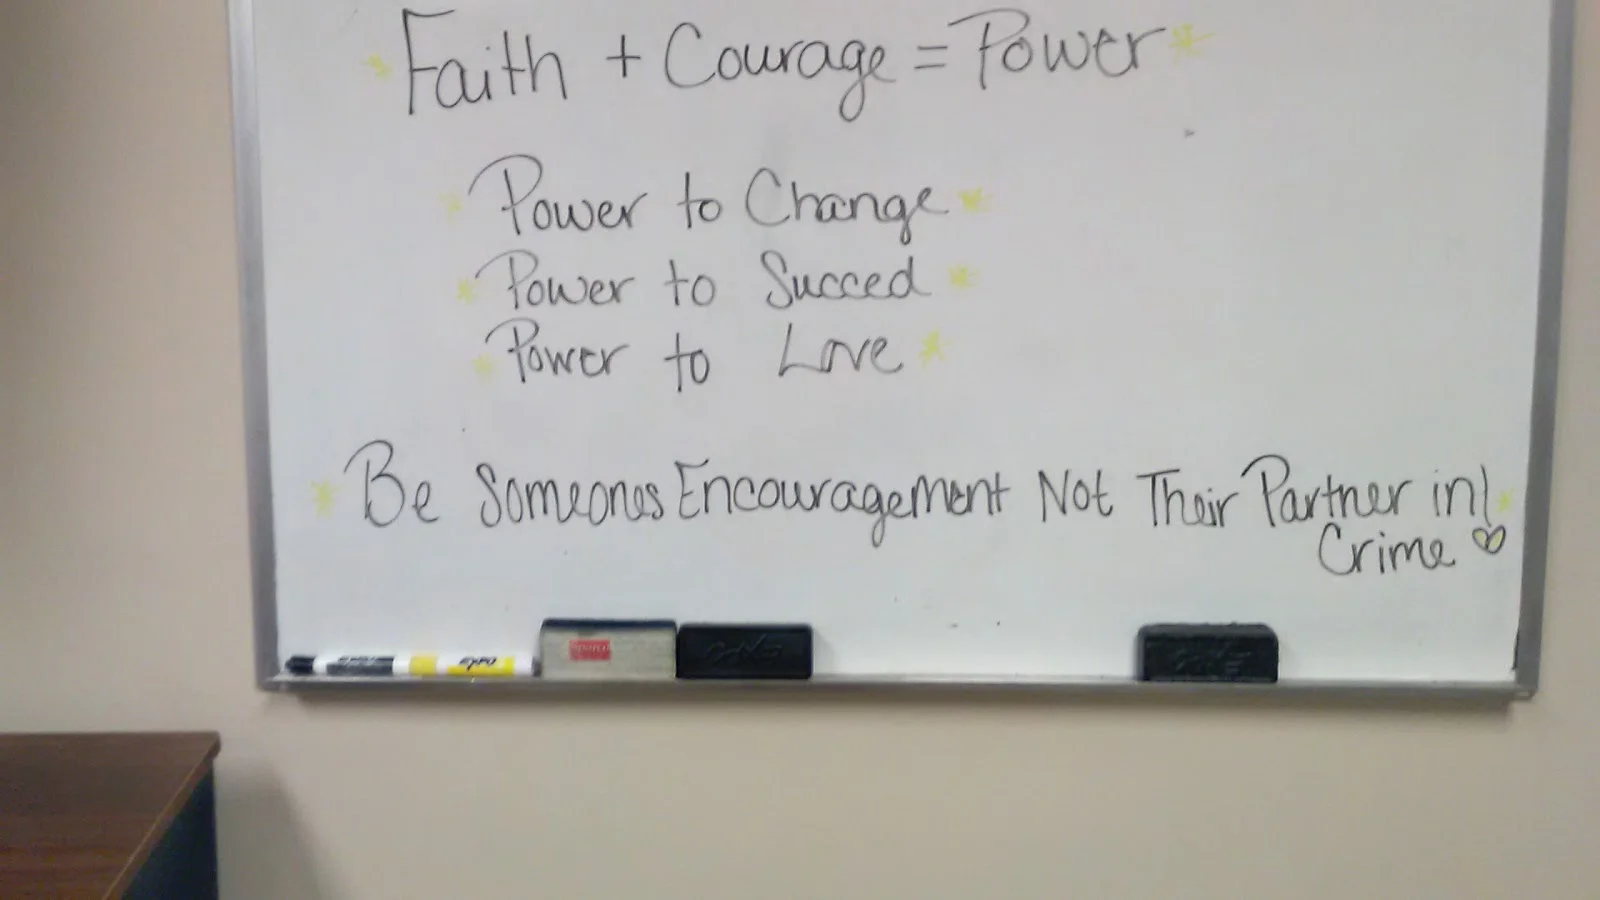 Faith + Courage = Power
Power to Change
Power to Succed
Power to Love
Be Someones Encouragement Not Their Partner in
Crime